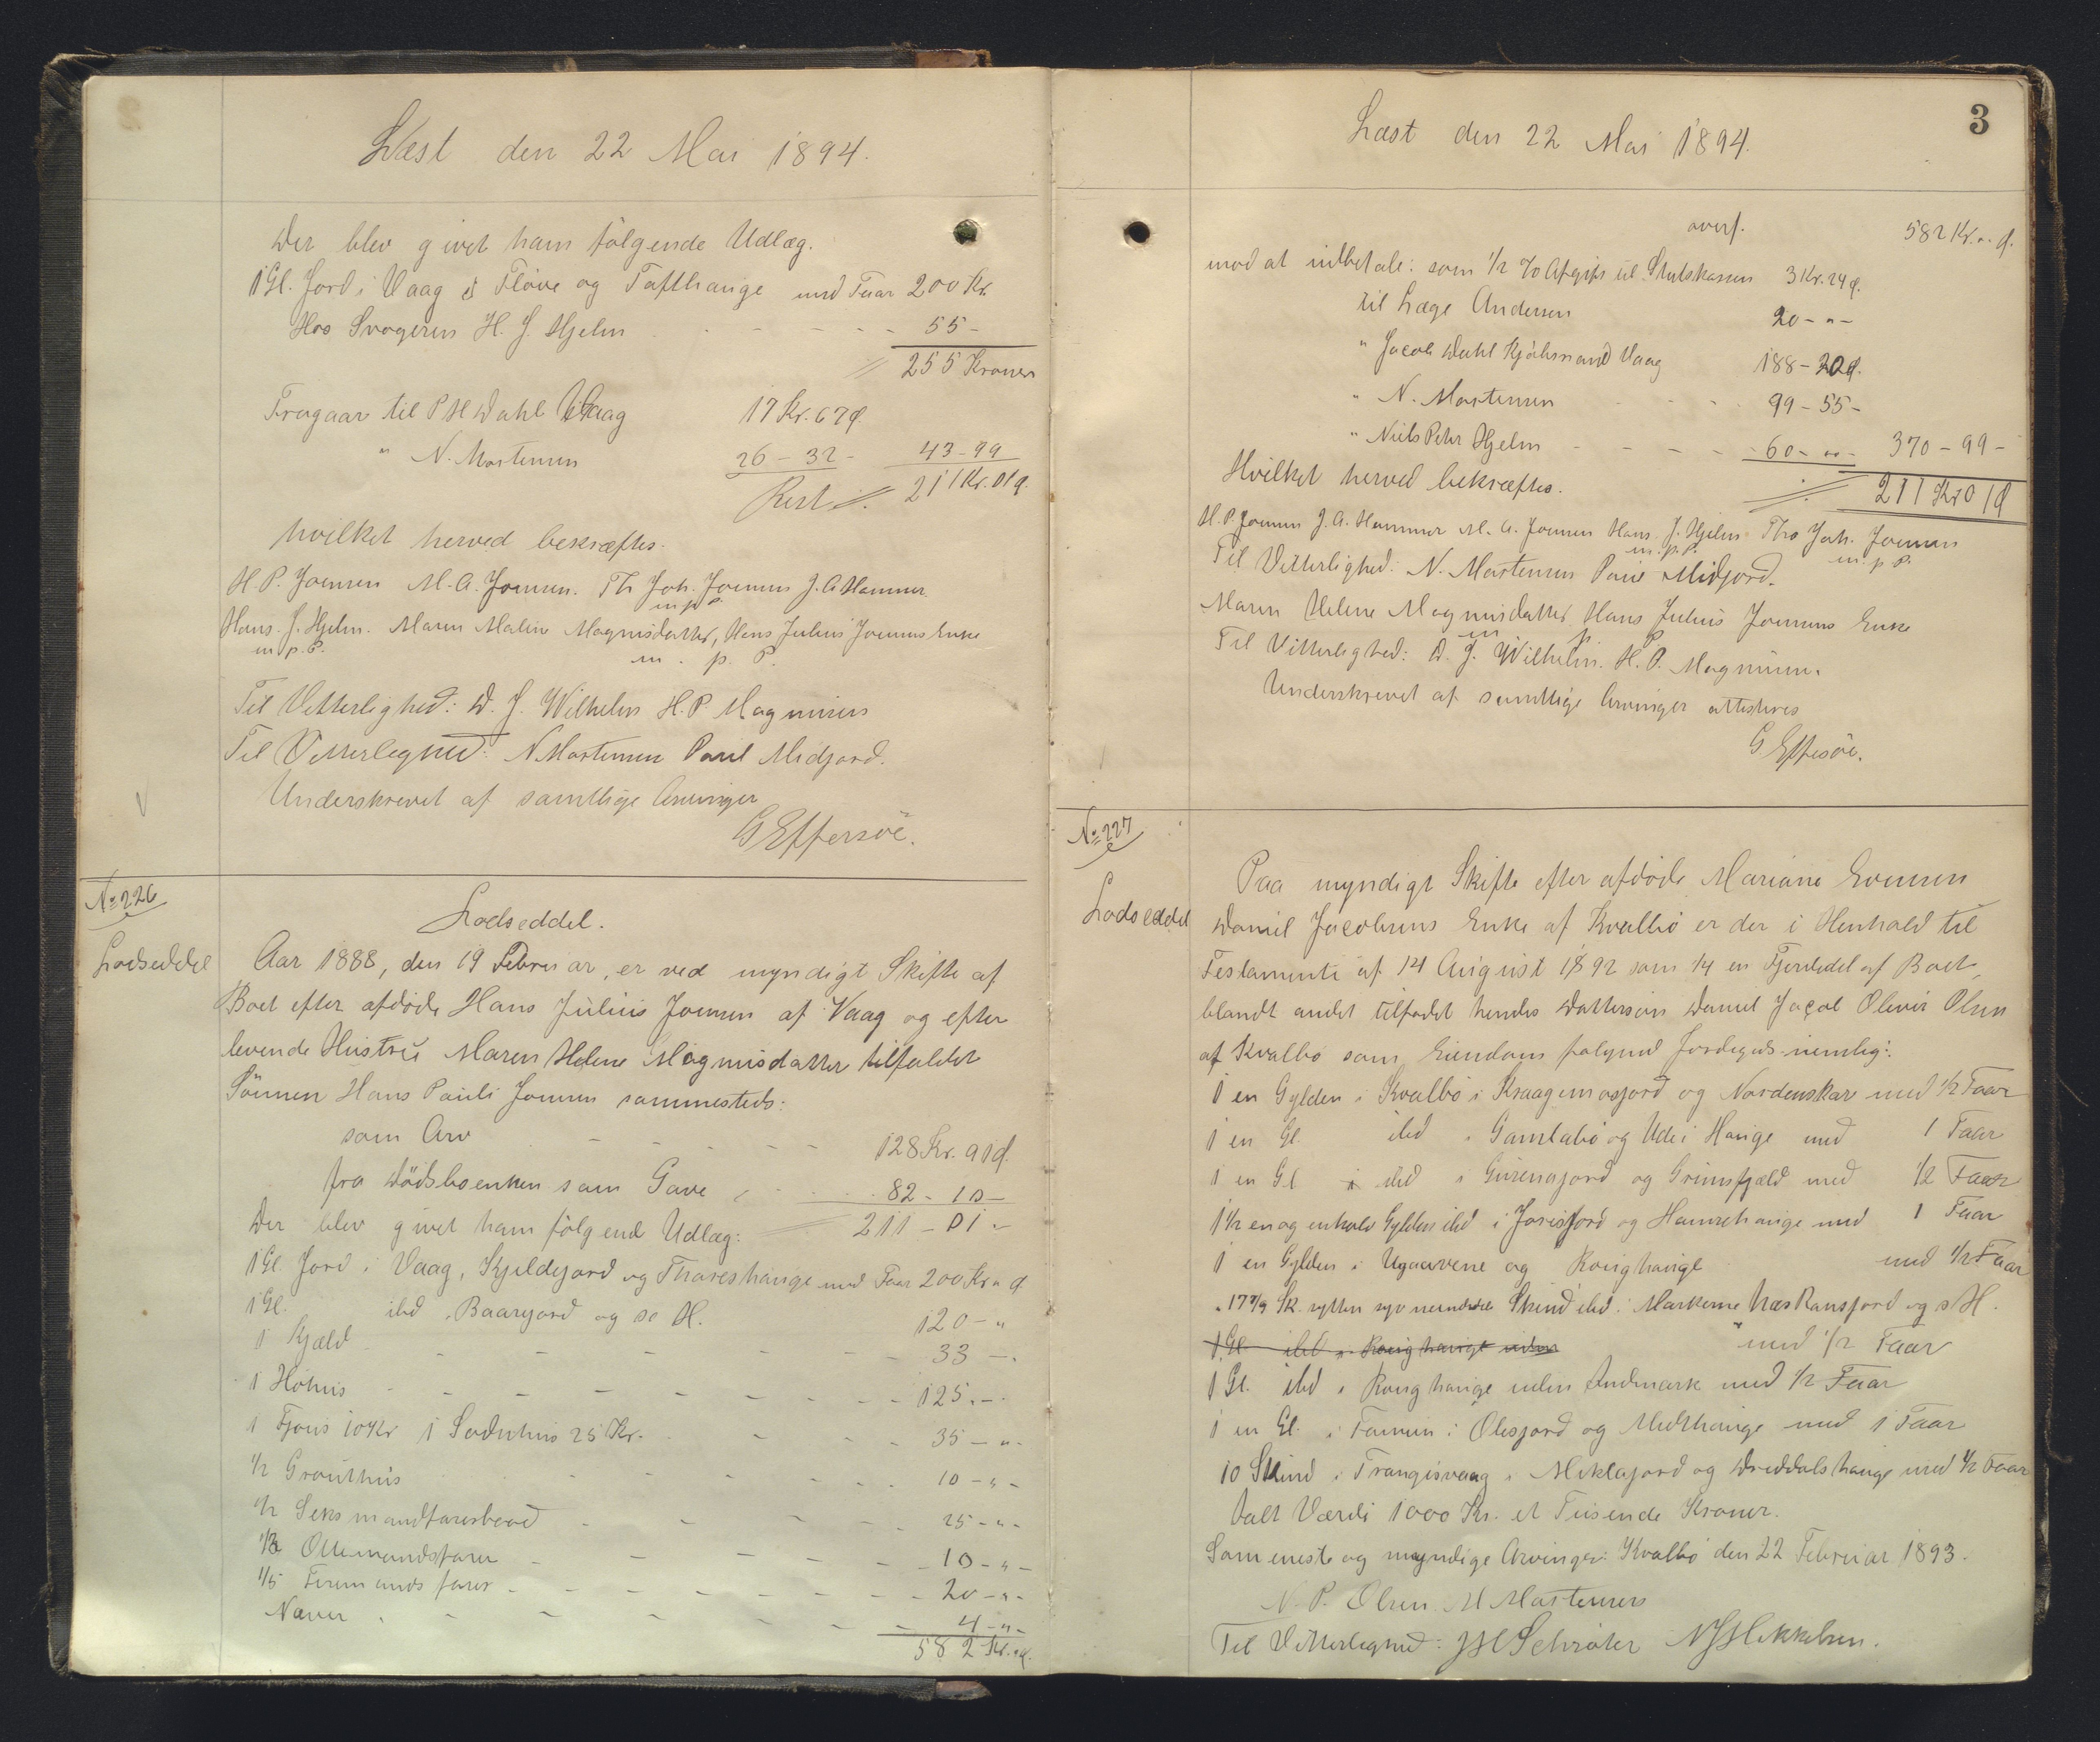 Læst den 22 Mai 1894.
Der blev givet ham følgende Udlæg.
1 Gl. Jord i Vaag Fløve og Tofthauge med Faar 200 Kr.
Hos Svogeren H. J. Hjelm - - - - 55 -
255 Kroner
Fragaar til P H Dahl Vaag 17 Kr. 67 Ø.
" N. Mortensen 26 - 32 - 43 - 99
Rest 211 Kr. 01 Ø.
hvilket herved bekræftes.
H. P. Joensen M. A. Joensen. Th Joh. Joensen J. A Hammer
m p P.
Hans. J. Hjelm. Maren Malene Magnusdatter, Hans Julius Joensens Enke
m p. P. m. p. P.
Til Vitterlighed: D. J. Wilhelm H. P. Magnussen
Til Vitterlighed: N Mortensen Poul Midjord.
Underskrevet af samtlige Arvinger
G Effersöe.
No 226
Lodseddel
Lodseddel.
Aar 1888, den 19 Februar, er ved myndigt Skifte af
Boet efter afdøde Hans Julius Joensen af Vaag og efter
levende Hustru Maren Helene Magnusdatter tilfaldet
Sønnen Hans Pauli Joensen sammesteds:
som Arv - - - - - 128 Kr. 91 Ø.
fra Dødsboenken som Gave 82 - 10 -
Der blev givet ham følgend Udlæg: 211 - 01 -
1 Gl. Jord i Vaag, Kjeldejord og Thoreshauge med Faar 200 Kr. " Ø
1 Gl. ibd. Baarjord og so H. 120 - "
1 Kjæld - - - - - 33 -
1 Høhus - - - - - - 125. -
1 Fjøus 10 Kr 1 Sodnhus 25 Kr. - - - 35 - " -
1/2 Grouthus - - - 10 - " -
1/2 Seksmandfaresbaad - - - - 25 - " -
Ottemandsfarer - - - - - 10 - " -
1/5 Firemandsfarer - - - - - - 20 - " -
Næver - - - - - - 4 - " -
582 Kr. " Ø.
3
Læst den 22 Mai 1894.
overf. 582 Kr. " Ø.
mod at indbetale: som 1/2 % Afgift til Statskassen 3 Kr. 24 Ø.
til Læge Andersen 20 - " -
" Jacob Dahl Kjøbmand Vaag 188 - 20 Ø.
" N. Mortensen - - 99 - 55 -
" Niels Peter Hjelm - - - - 60 - " - 370 - 99 -
Hvilket herved bekræftes. 211 Kr 01 Ø
H. P. Joensen J. A. Hammer M. A. Joensen Hans. J. Hjelm Tho Joh. Joensen
m. p. P. m p P.
Til Vitterlighed: N. Mortensen Poul Midjord.
Maren Helene Magnusdatter Hans Julius Joensens Enke
m p P
Til Vitterlighed: D. J. Wilhelm. H. P. Magnussen.
Underskrevet af samtlige Arvinger attesteres
G. Effersöe.
No 227
Lodseddel
Paa myndigt Skifte efter afdøde Mariane Evensen
Daniel Jacobsens Enke af Kvalbø er der i Henhold til
Testamente af 14 August 1892 som 1/4 en Fjerdedel af Boet,
blandt andet tilfaldet hendes Dattersøn Daniel Jacob Olevir Olsen
af Kvalbø som Eiendom følgend Jordegods nemlig:
1 en Gylden i Kvalbø i Kraagemosjord og Nordenskar med 1/2 Faar
1 en Gl. ibd i Gamlabø og Ude i Hauge med 1 Faar
1 en Gl ibd i Gurenajord og Grimsfjæld med 1/2 Faar
1 1/2 en og enhalv Gylden ibd i Jorisfjord og Hamrehauge med 1 Faar
1 en Gylden i Ugaarvene og Konghauge med 1/2 Faar
" 17 7/9 Sk. sytten syv niendedele Skind ibd. i Markerne Næs Ransjord og s H.
1 Gl ibd i Konghauge uden " med 1/2 Faar
1 Gl. ibd i Konghauge uden Indmark med 1/2 Faar
1 en Gl. i Famien i Olesjord og Midthauge med 1 Faar
10 Skind i Trangisvaag i Miklajord og Dreddalshauge med 1/2 Faar
Talt Værdi 1000 Kr. et Tusende Kroner.
Som eneste og myndige Arvinger: Kvalbø den 22 Februar 1893.
N. P. Olsen. M Mortensen
Til Vitterlighed: J H Schrøter N J Mikkelsen.